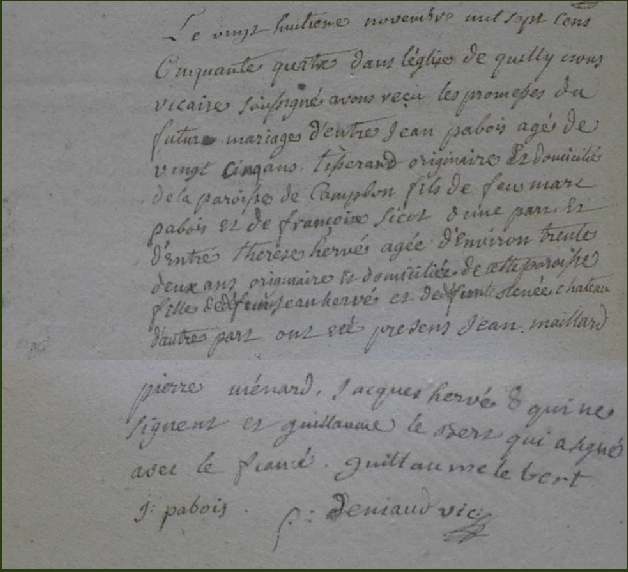 Le vingt huitieme novembre mil sept cens
Cinquante quatre dans l'église de quilly nous
vicaire soussigné avons reçu les promesses du
futur mariage d'entre Jean pabois agé de
vingt cinq ans tisserand originaire Et domicilié
de la paroisse de Campbon fils de feu marc
pabois et de françoise Sicot d'une part Et
d'entre therese hervé agée d'Environ trente
deux ans originaire Et domiciliée de cette paroisse
fille de défunt Jean hervé et de défunte Renée chateau
d'autre part ont été presens Jean maillard
pierre ménard, Jacques hervé & qui ne
signent et guillaume le Bert qui a signé
avec le fiancé. guillaume le bert
J: pabois. p: deniaud vic